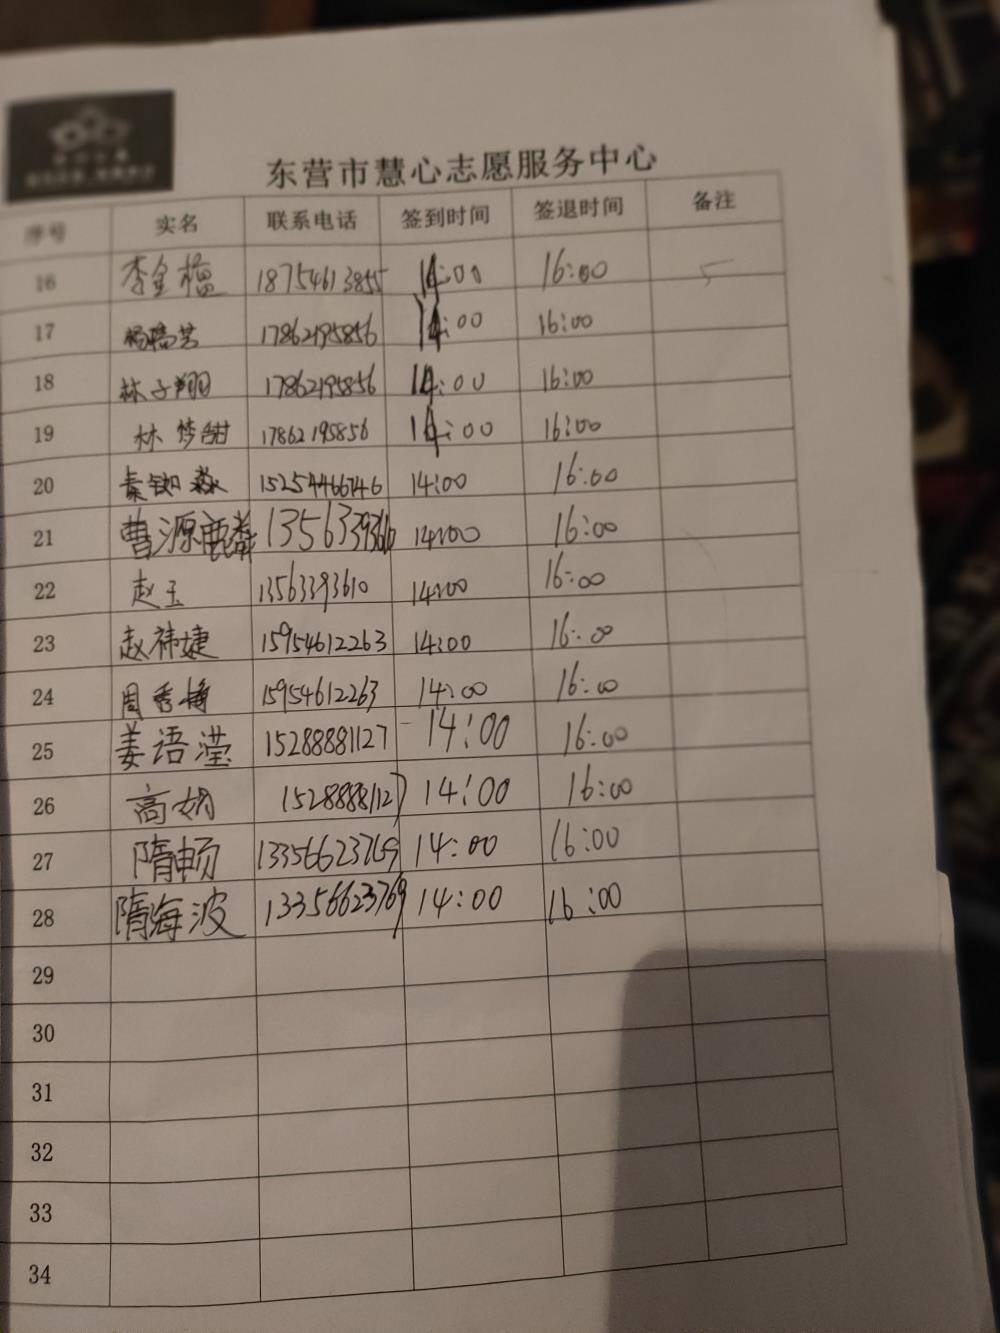 东营市慧心志愿服务中心
序号 实名 联系电话 签到时间 签退时间 备注
16 李金楹 18754613855 14:00 16:00
17 17862195856 14:00 16:00
18 林子翔 17862195856 14:00 16:00
19 林梦甜 17862195856 14:00 16:00
20 15254466746 14:00 16:00
21 曹源麒麟 13563393610 14:00 16:00
22 赵玉 13563393610 14:00 16:00
23 赵祎婕 15954612263 14:00 16:00
24 周秀梅 15954612263 14:00 16:00
25 姜语滢 15288881127 14:00 16:00
26 高娟 15288881127 14:00 16:00
27 隋畅 13356623769 14:00 16:00
28 隋海波 13356623769 14:00 16:00
29
30
31
32
33
34